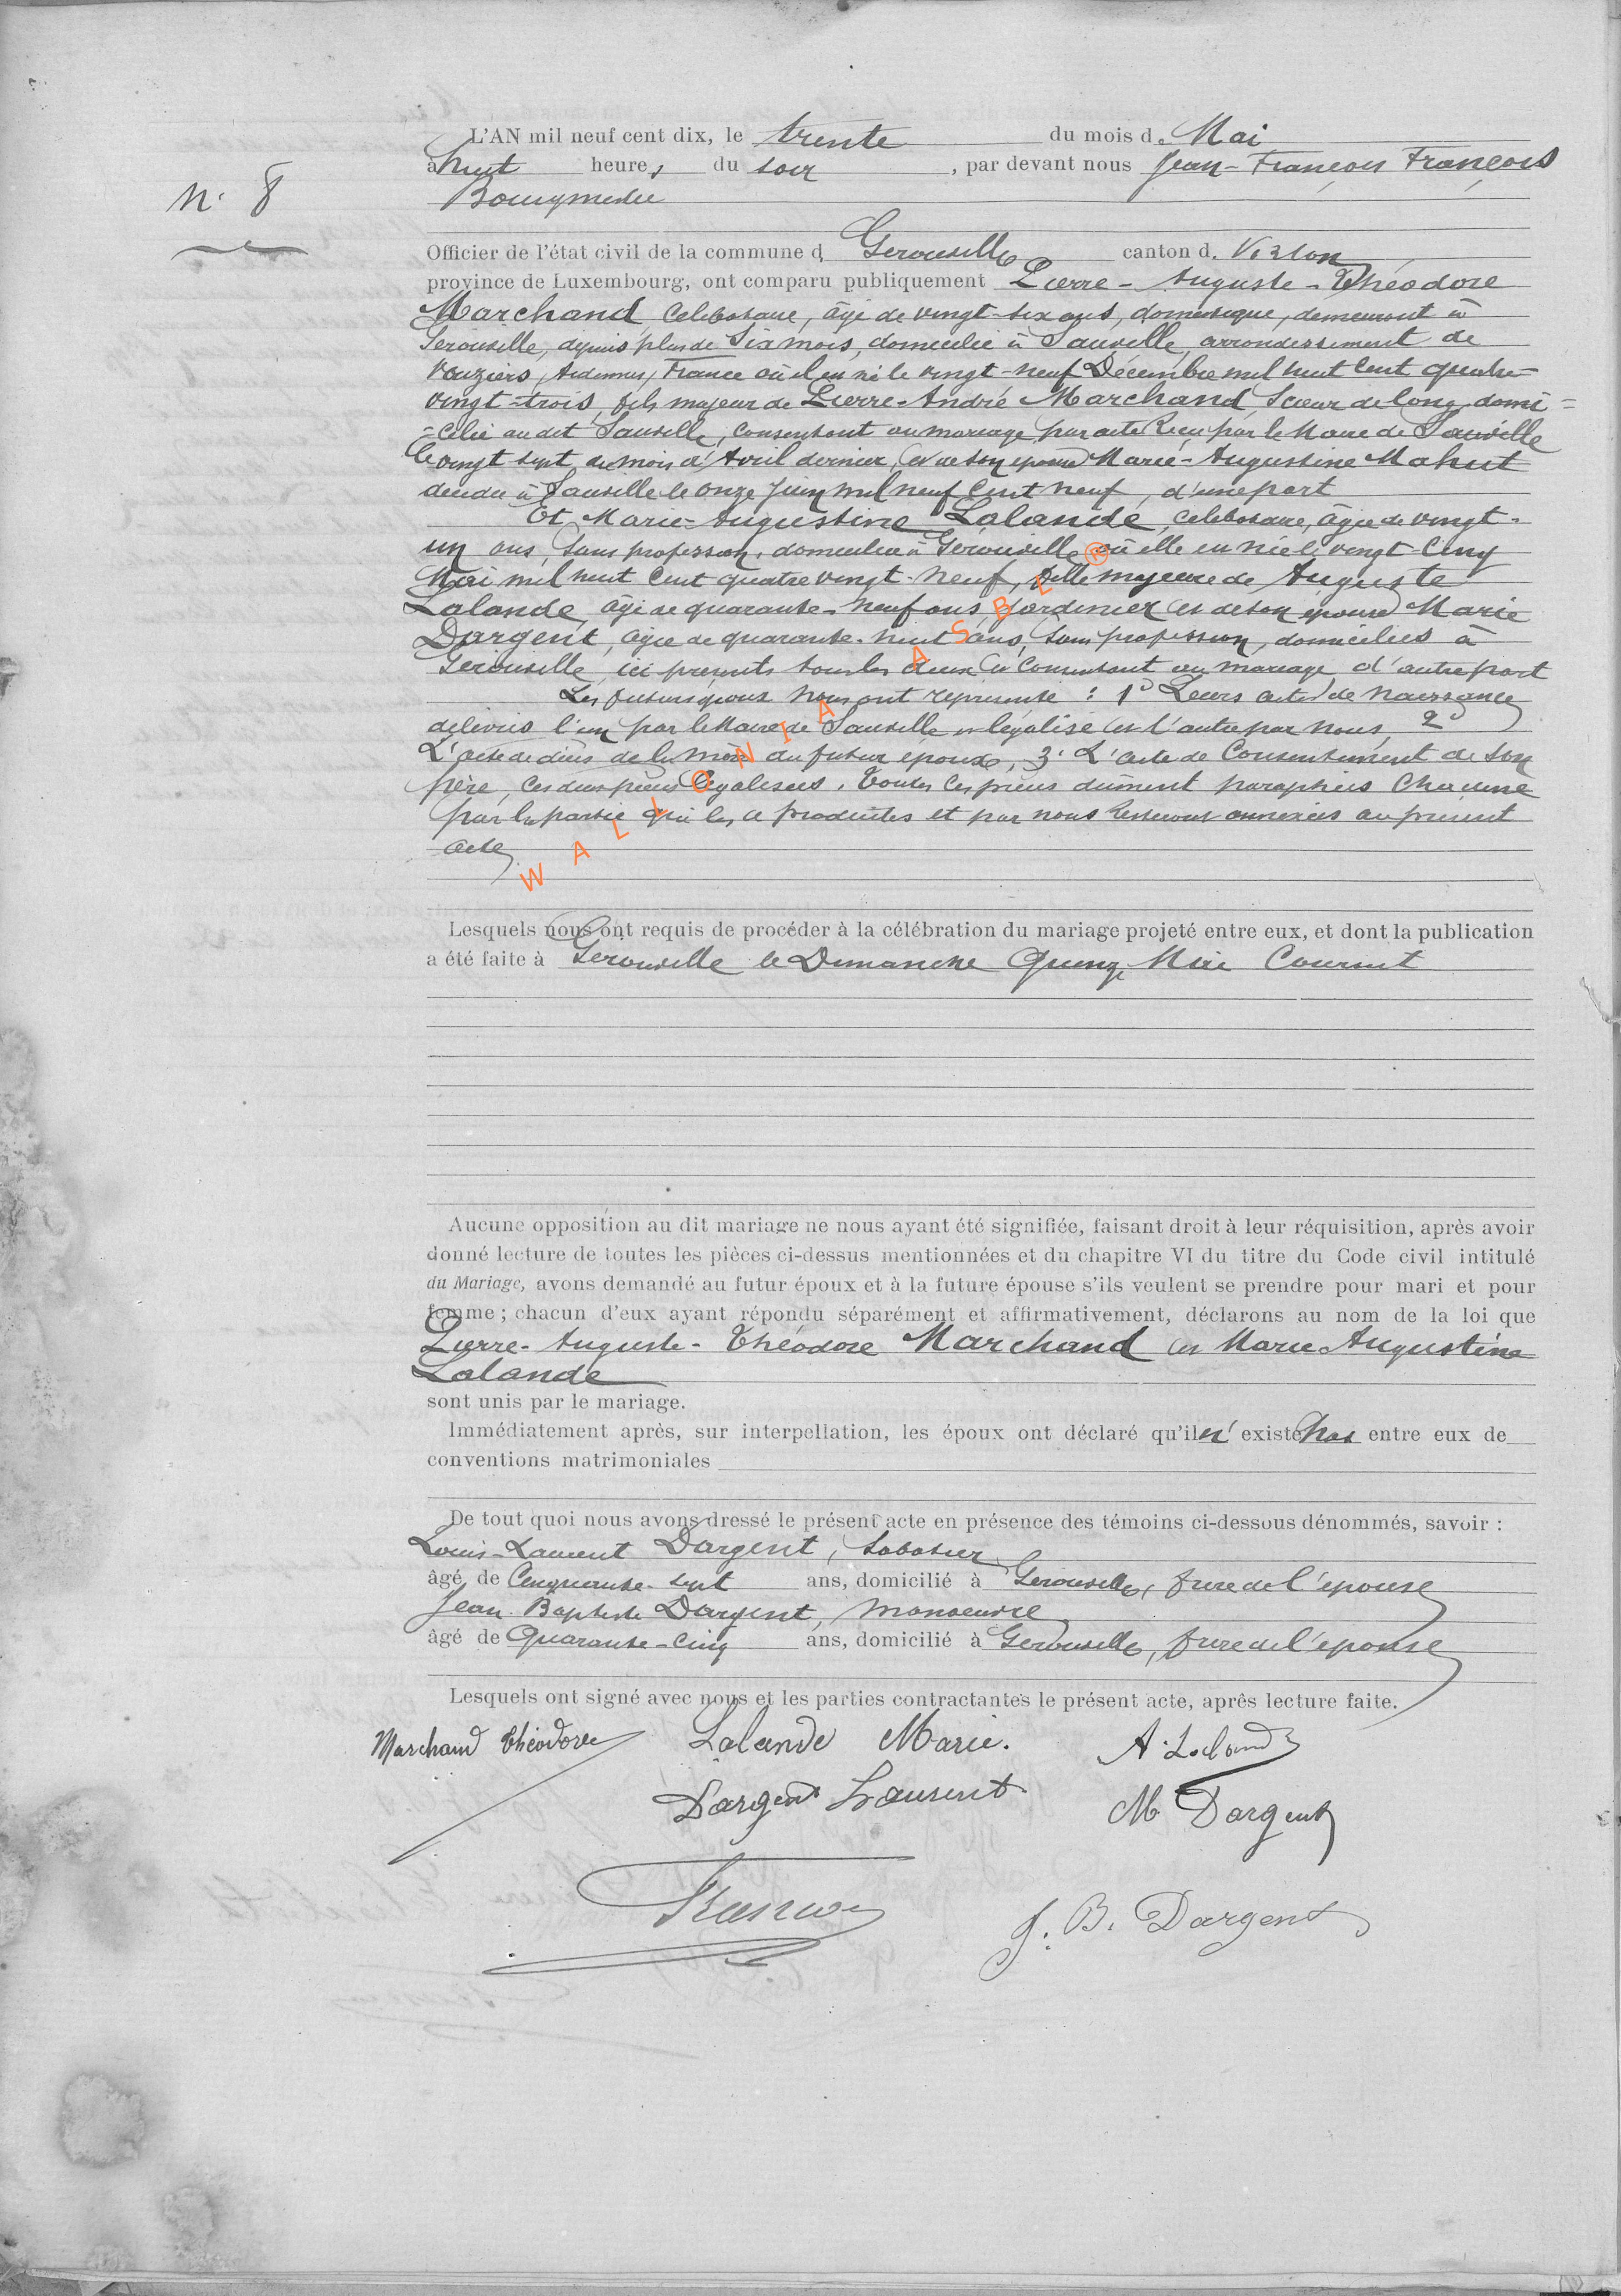 L'AN mil neuf cent dix, le trente du mois de Mai
N. 8
à huit heures du soir, par devant nous Jean-François François
Bourgmestre
Officier de l'état civil de la commune d Gerouville canton d. Virton
province de Luxembourg, ont comparu publiquement Pierre-Auguste-Théodore
Marchand, célibataire, âgé de vingt-six ans, domestique, demeurant à
Gerouville, depuis plus de Six mois, domicilié à Sauville, arrondissement de
Vouziers, Ardennes, France où il est né le vingt-neuf Décembre mil huit cent quatre-
vingt-trois, fils majeur de Pierre-André Marchand, Scieur de long, domi=
=cilié au dit Sauville, consentant au mariage par acte Reçu par le Maire de Sauville
le vingt sept du mois d'Avril dernier, et de son épouse Marie-Augustine Mahut
décédée à Sauville le onze Juin mil neuf cent neuf, d'une part
Et Marie-Augustine Lalande, célibataire, âgée de vingt-
un ans, Sans profession, domiciliée à Gérouville où elle est née le vingt-cinq
Mai mil huit cent quatre vingt-neuf, fille majeure de Auguste
Lalande, âgé de quarante-neuf ans, Jardinier et de son épouse Marie
Dargent, âgée de quarante-huit ans, Sans profession, domiciliés à
Gérouville, ici présents tous les deux et consentant au mariage, d'autre part
Les futurs époux nous ont représenté : 1° Leurs actes de naissance
délivrés l'un par le Maire de Sauville et légalisé et l'autre par nous, 2°
L'acte de décès de la mère du futur époux, 3° L'acte de Consentement de son
père, ces deux pièces légalisées. Toutes ces pièces dûment paraphées chacune
par la partie qui les a produites et par nous resteront annexées au présent
acte
WALLONIA ASBL ®
Lesquels nous ont requis de procéder à la célébration du mariage projeté entre eux, et dont la publication
a été faite à Gerouville le Dimanche Quinze Mai Courant
Aucune opposition au dit mariage ne nous ayant été signifiée, faisant droit à leur réquisition, après avoir
donné lecture de toutes les pièces ci-dessus mentionnées et du chapitre VI du titre du Code civil intitulé
du Mariage, avons demandé au futur époux et à la future épouse s'ils veulent se prendre pour mari et pour
femme ; chacun d'eux ayant répondu séparément et affirmativement, déclarons au nom de la loi que
Pierre-Auguste-Théodore Marchand et Marie Augustine
Lalande
sont unis par le mariage.
Immédiatement après, sur interpellation, les époux ont déclaré qu'il n'existe pas entre eux de
conventions matrimoniales
De tout quoi nous avons dressé le présent acte en présence des témoins ci-dessous dénommés, savoir :
Louis-Laurent Dargent, Sabotier
âgé de Cinquante-sept ans, domicilié à Gerouville, frère de l'épouse
Jean Baptiste Dargent, manoeuvre
âgé de Quarante-cinq ans, domicilié à Gerouville, frère de l'épouse
Lesquels ont signé avec nous et les parties contractantes le présent acte, après lecture faite.
Marchand Théodore Lalande Marie. A. Lalande
Dargent Laurent M Dargent
François J. B. Dargent